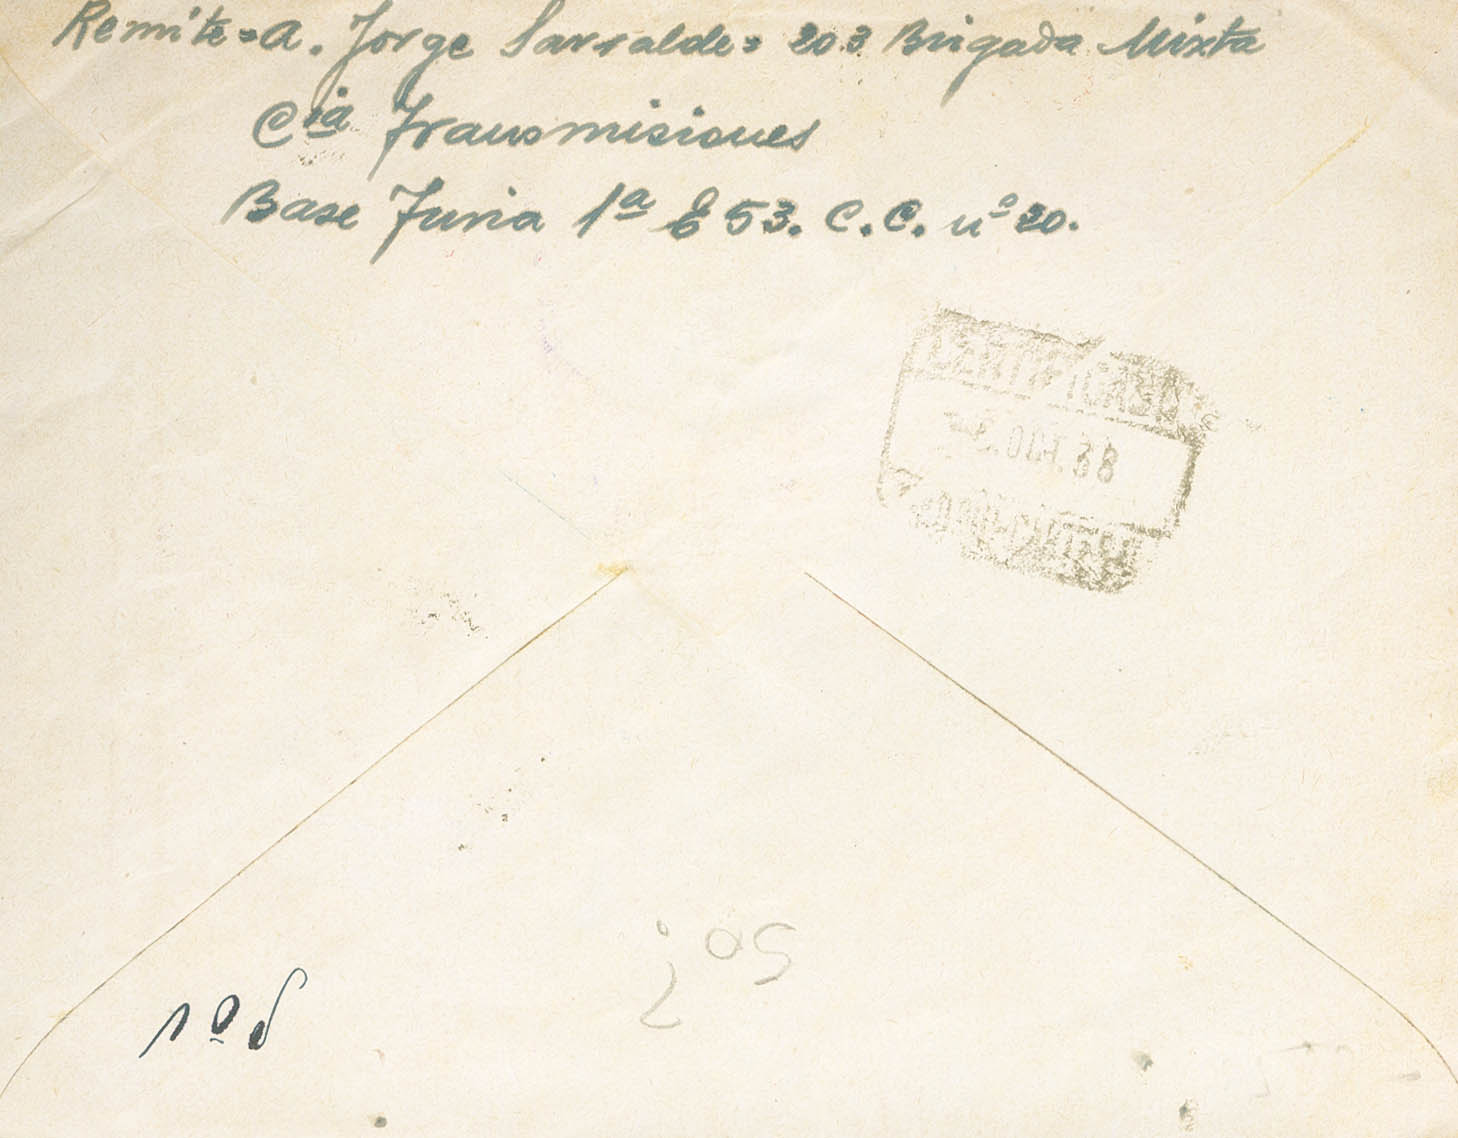 Remite = A. Jorge Sarralde = 203 Brigada Mixta
Cia Transmisiones
Base Turia 1ª E 53. C.C. nº 20.
CERTIFICADO
OCT. 38
50
1º